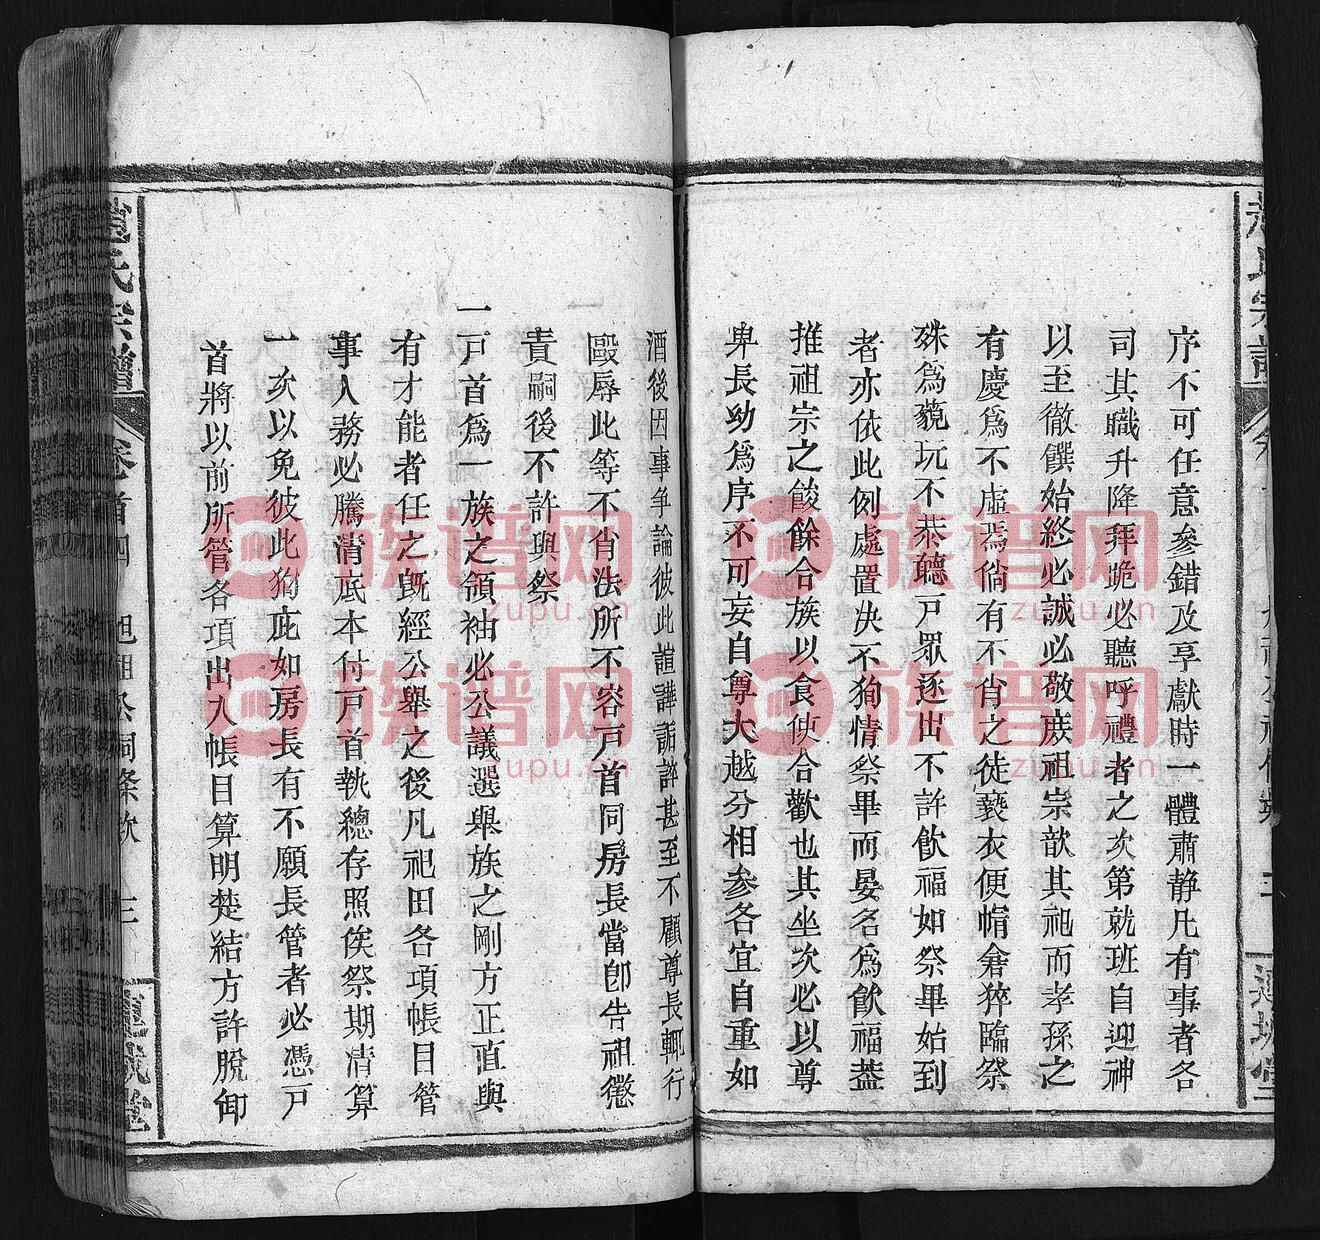 序不可任意參錯及享獻時一體肅静凡有事者各
司其職升降拜跪必聽呼禮者之次第就班自迎神
以至徹饌始終必誠必敬庻祖宗歆其祀而孝孫之
有慶爲不虛焉倘有不肖之徒褻衣便帽窘猝臨祭
殊爲藐玩不恭聽戸眾逐出不許飲福如祭畢始到
者亦依此例處置决不狥情祭畢而晏名爲飲福葢
推祖宗之餕餘合族以食使合歡也其坐次必以尊
卑長幼爲序不可妄自尊大越分相參各宜自重如
酒後因事爭論彼此諠譁詬誶甚至不顧尊長輒行
毆辱此等不肖法所不容戸首同房長當卽告祖懲
責嗣後不許與祭
一戸首爲一族之領袖必公議選舉族之剛方正直與
有才能者任之旣經公舉之後凡祀田各項帳目管
事人務必騰清底本付戸首執總存照俟祭期清算
一次以免彼此狥庇如房長有不願長管者必憑戸
首將以前所管各項出入帳目算明楚結方許脫卸
趙氏宗譜
卷首四
祖公祠條欵
三
族谱网
zupu.cn
族谱网
zupu.cn
族谱网
zupu.cn
族谱网
zupu.cn